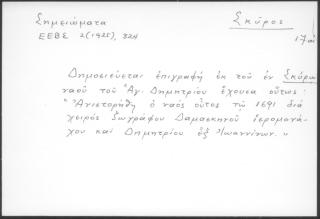 Σημειώματα
Σκῦρος
ΕΕΒΣ 2(1925), 324
17 αἰ
Δημοσιεύεται ἐπιγραφή ἐκ τοῦ ἐν Σκύρῳ
ναοῦ τοῦ Ἁγ. Δημητρίου ἔχουσα οὕτως:
"Ἀνιστορήθη ὁ ναός οὗτος τῷ 1691 διά
χειρός ζωγράφου Δαμασκηνοῦ ἱερομονά-
χου καί Δημητρίου ἐξ Ἰωαννίνων."